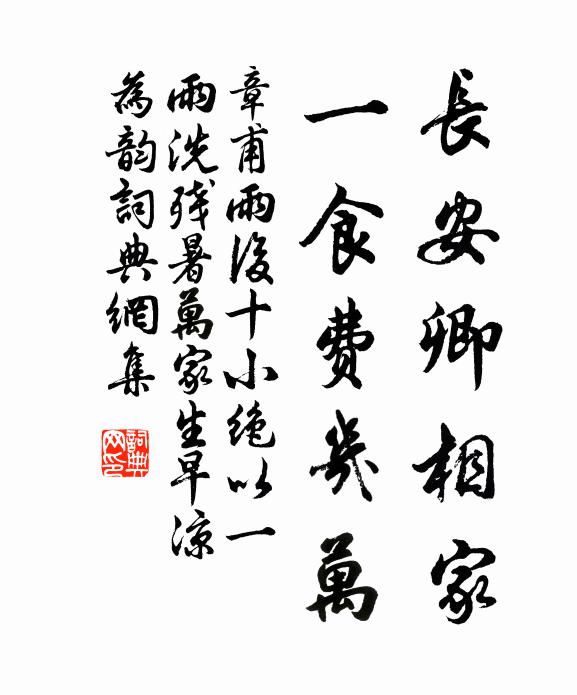 長安卿相家
一食費幾萬
章甫雨後十小絶以一
雨洗残暑萬家生早凉
為韵詞典網集
詞典
网印